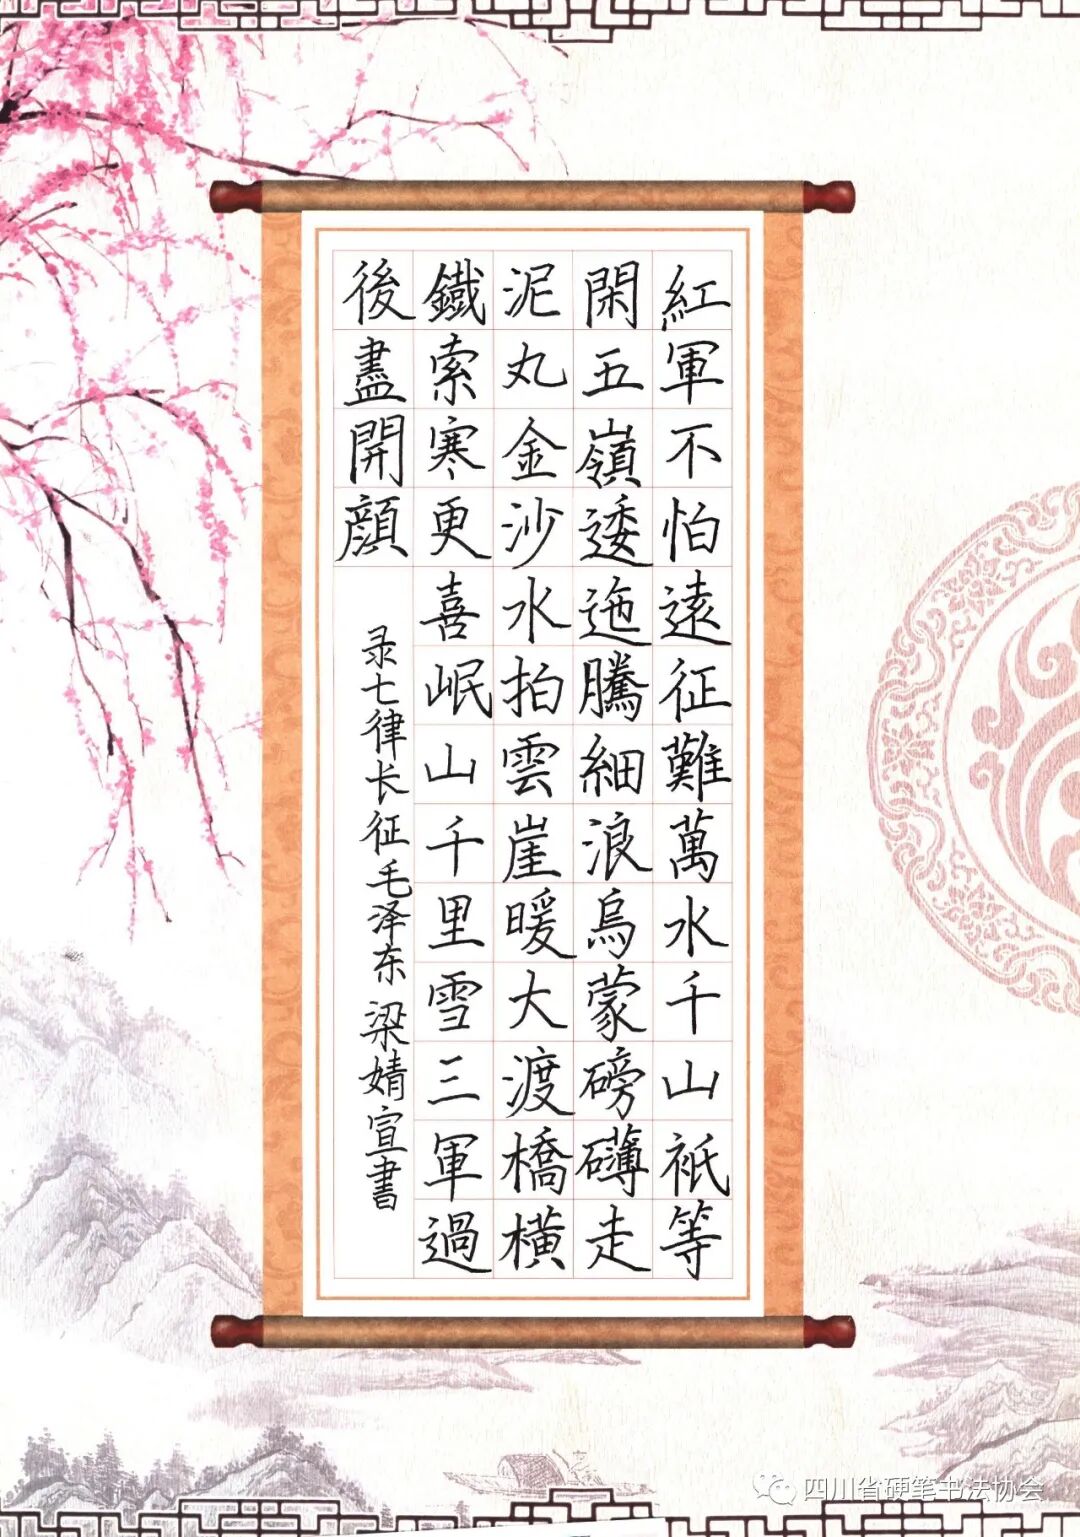 紅軍不怕遠征難萬水千山祇等
閑五嶺逶迤騰細浪烏蒙磅礴走
泥丸金沙水拍雲崖暖大渡橋横
鐵索寒更喜岷山千里雪三軍過
後盡開顔
录七律长征毛泽东梁婧宣書
四川省硬笔书法协会